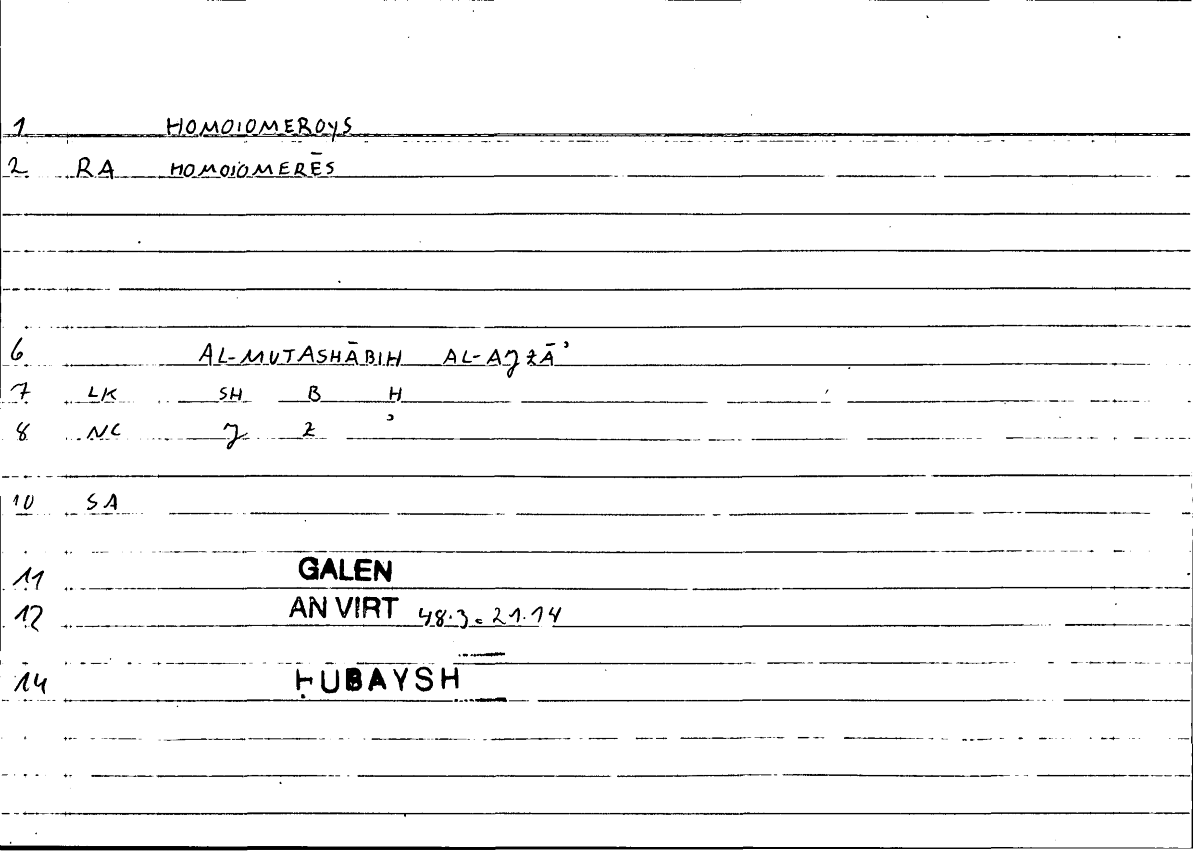 1 HOMOIOMEROYS
2 RA HOMOIOMERĒS
6 AL-MUTASHĀBIH AL-AJZĀʾ
7 LK SH B H
8 NC J Z ʾ
10 SA
11 GALEN
12 AN VIRT 48.3 = 21.14
14 ḤUBAYSH